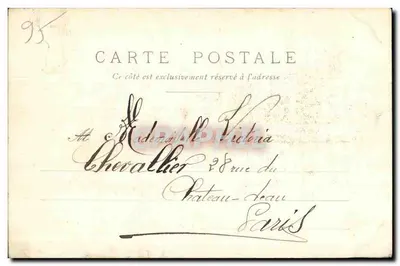 95
CARTE POSTALE
Ce côté est exclusivement réservé à l'adresse
A Mademoiselle Victoria
Chevallier 28 rue du
Château-deau
Paris